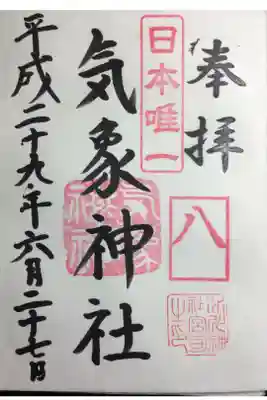 奉拝
八
日本唯一
気象神社
平成二十九年六月二十七日